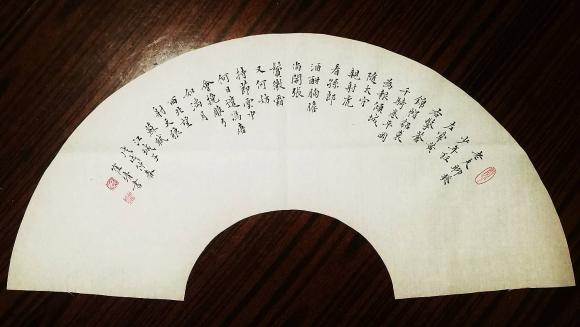 老夫聊發
少年狂
左牽黃
右擎蒼
錦帽貂裘
千騎卷平岡
為報傾城
隨太守
親射虎
看孫郎
酒酣胸膽
尚開張
鬢微霜
又何妨
持節雲中
何日遣馮唐
會挽雕弓
如滿月
西北望
射天狼
蘇軾
江城子
戊戌仲春
書